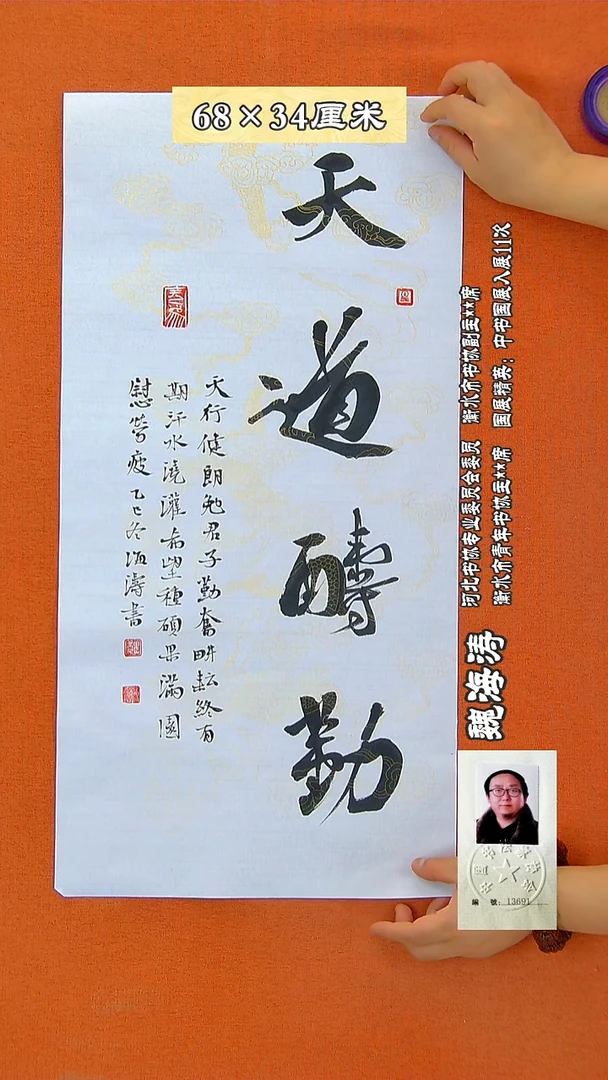 68×34厘米
天道醻勤
天行健朗勉君子勤奮畊耘終有
期汗水澆灌希望種碩果滿園
慰勞疲乙巳冬海濤書
魏海涛
河北书协专业委员会委员 衡水市书协副主**席
衡水市青年书协主**席 国展精英：中书国展入展11次
編號：13691